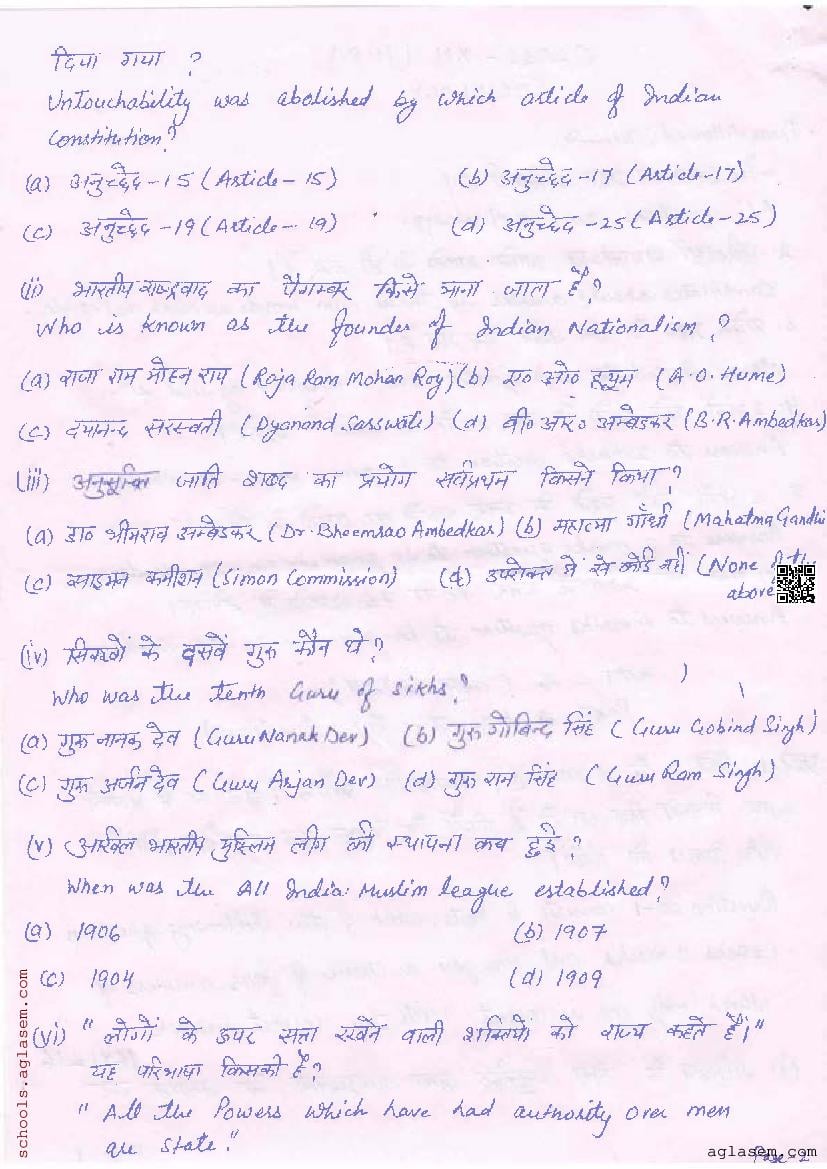 दिया गया ?
Untouchability was abolished by which article of Indian
Constitution?
(a) अनुच्छेद-15 (Article-15) (b) अनुच्छेद-17 (Article-17)
(c) अनुच्छेद-19 (Article-19) (d) अनुच्छेद-25 (Article-25)
(ii) भारतीय राष्ट्रवाद का पैगम्बर किसे माना जाता है?
Who is known as the founder of Indian Nationalism?
(a) राजा राम मोहन राय (Raja Ram Mohan Roy) (b) ए० ओ० ह्यूम (A.O. Hume)
(c) दयानन्द सरस्वती (Dyanand Sarswati) (d) बी० आर० अम्बेडकर (B.R. Ambedkar)
(iii) जाति शब्द का प्रयोग सर्वप्रथम किसने किया?
(a) डा० भीमराव अम्बेडकर (Dr. Bheemrao Ambedkar) (b) महात्मा गाँधी (Mahatma Gandhi
(c) साइमन कमीशन (Simon Commission) (d) उपरोक्त में से कोई नहीं (None of the
above
(iv) सिक्खों के दसवें गुरु कौन थे?
Who was the tenth Guru of Sikhs?
(a) गुरु नानक देव (Guru Nanak Dev) (b) गुरु गोबिन्द सिंह (Guru Gobind Singh)
(c) गुरु अर्जन देव (Guru Arjan Dev) (d) गुरु राम सिंह (Guru Ram Singh)
(v) अखिल भारतीय मुस्लिम लीग की स्थापना कब हुई?
When was the All India Muslim league established?
(a) 1906 (b) 1907
(c) 1904 (d) 1909
(vi) "लोगों के ऊपर सत्ता रखने वाली शक्तियों को राज्य कहते हैं।"
यह परिभाषा किसकी है?
"All the Powers which have had authority over men
are State."
Page-2
schools.aglasem.com
aglasem.com